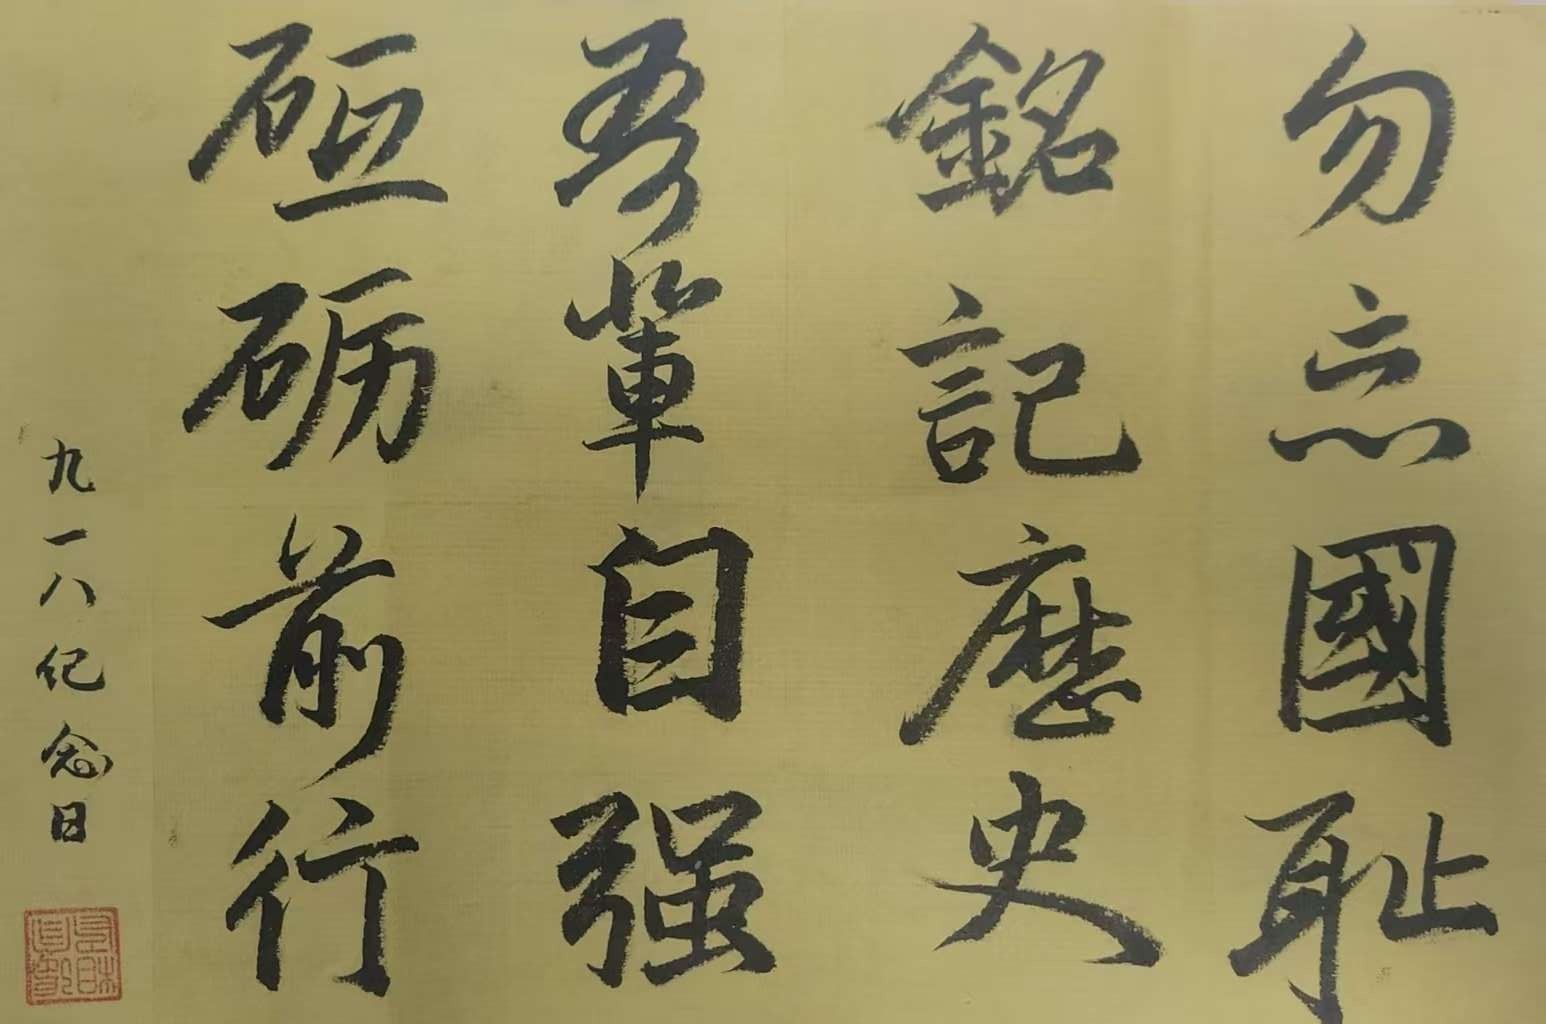 勿忘國耻
銘記歷史
吾輩自强
砥砺前行
九一八纪念日